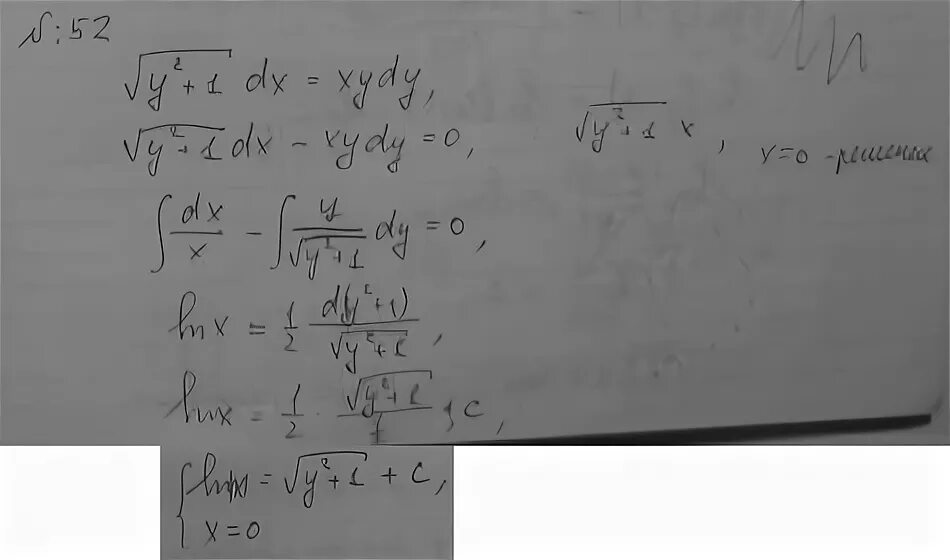 N: 52
√(y²+1) dx = xydy,
√(y²+1) dx − xydy = 0,
√(y²+1) x , x=0 - решение
∫ dx/x − ∫ y/√(y²+1) dy = 0,
ln x = 1/2 d(y²+1)/√(y²+1) ,
ln x = 1/2 · √(y²+1)/ + C,
{ ln|x| = √(y²+1) + C,
x=0